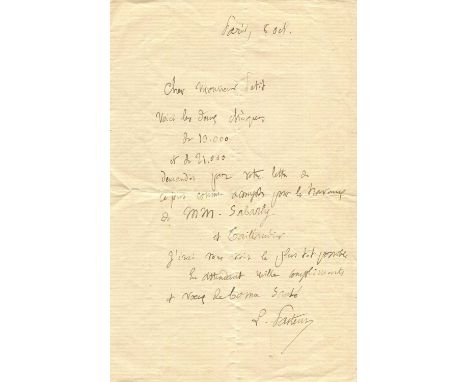 Paris, 5 oct.
Cher Monsieur Petit
Voici les deux chèques
de 10.000
et de 21.000
demandés par votre lettre de
ce jour comme acomptes pour les travaux
de MM. Sabarly
et
J'irai vous voir le plus tôt possible
En attendant mille compliments
et voeux de bonne santé
L. Pasteur